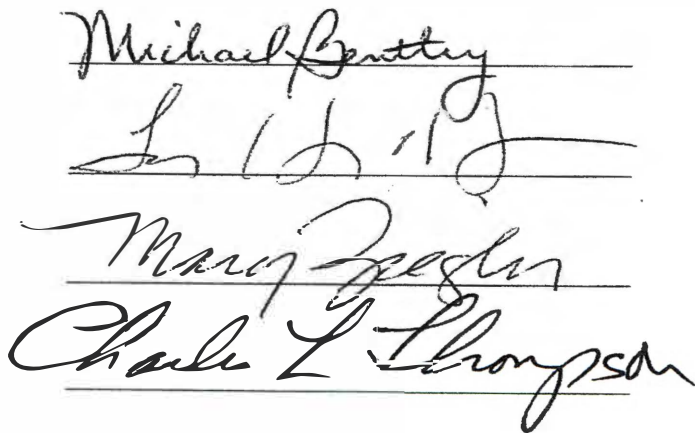 Michael Bentley
Mary Ziegler
Charles L Thompson